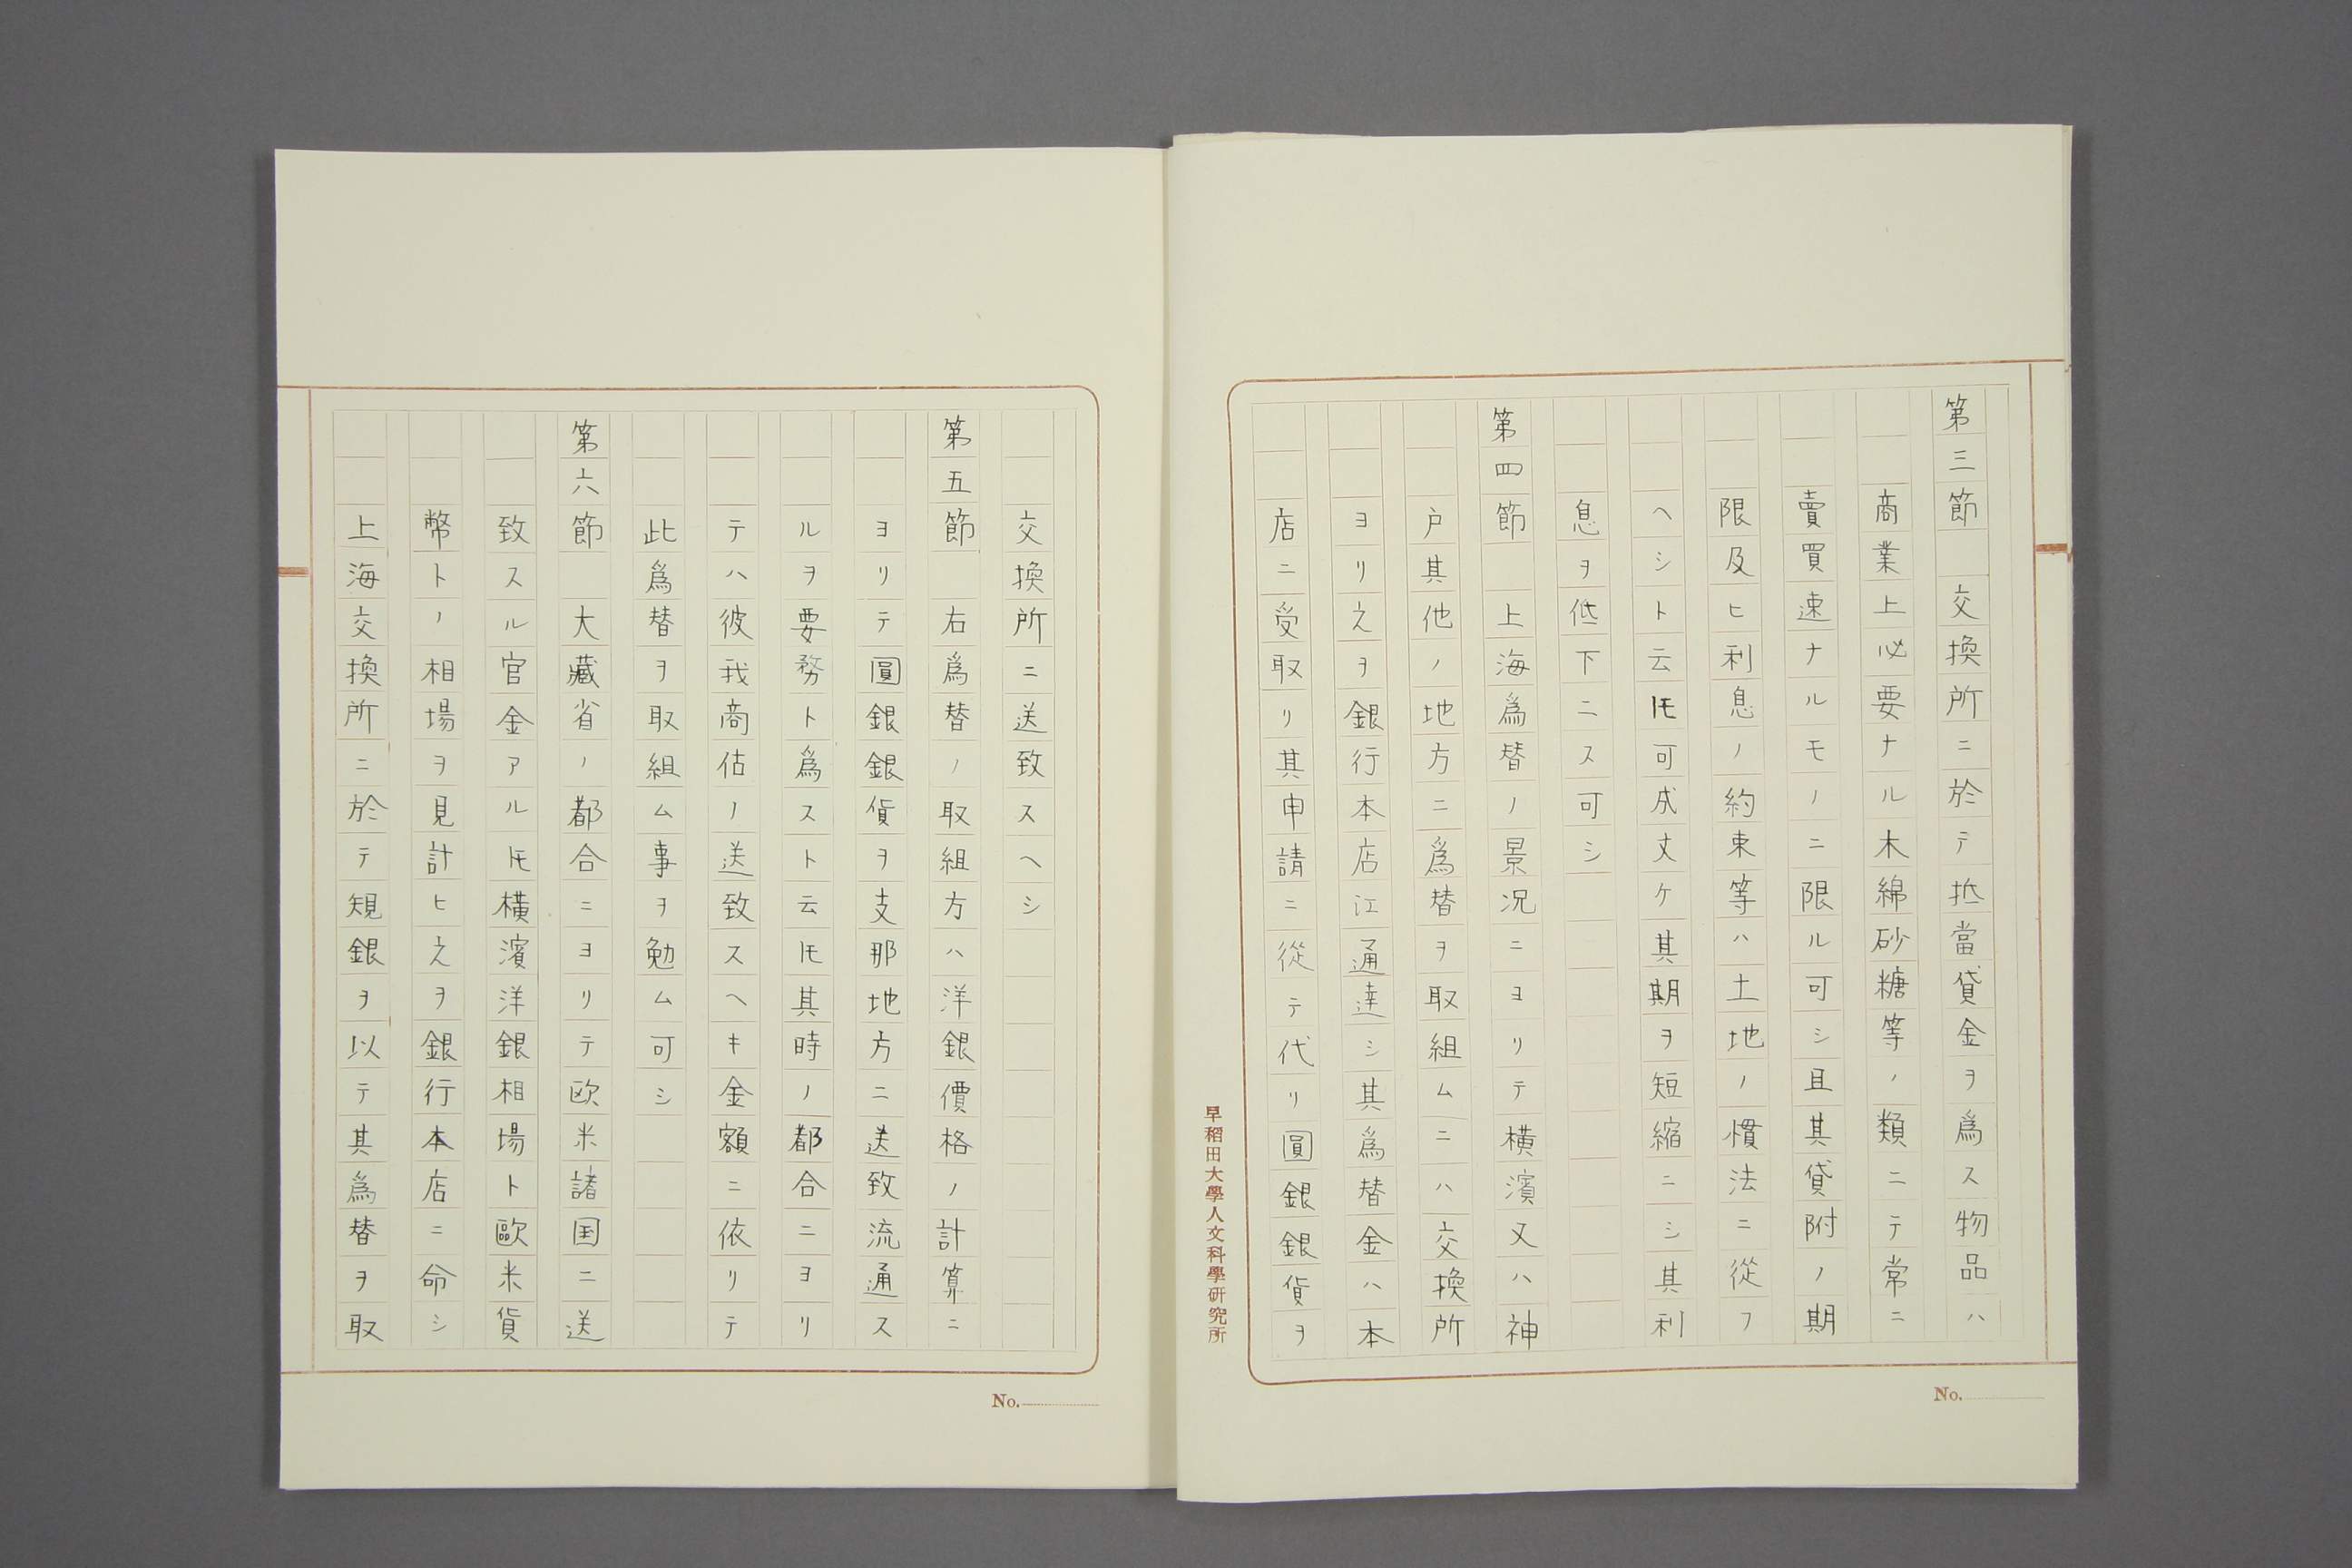 第三節　交換所ニ於テ抵當貸金ヲ爲ス物品ハ
商業上必要ナル木綿砂糖等ノ類ニテ常ニ
賣買速ナルモノニ限ル可シ且其貸附ノ期
限及ヒ利息ノ約束等ハ土地ノ慣法ニ從フ
ヘシト云𪜈可成丈ケ其期ヲ短縮ニシ其利
息ヲ低下ニス可シ
第四節　上海爲替ノ景况ニヨリテ横濱又ハ神
戸其他ノ地方ニ爲替ヲ取組ムニハ交換所
ヨリ之ヲ銀行本店江通達シ其爲替金ハ本
店ニ受取リ其申請ニ從テ代リ圓銀銀貨ヲ
早稻田大學人文科學研究所
No.
交換所ニ送致スヘシ
第五節　右爲替ノ取組方ハ洋銀價格ノ計算ニ
ヨリテ圓銀銀貨ヲ支那地方ニ送致流通ス
ルヲ要務ト爲スト云𪜈其時ノ都合ニヨリ
テハ彼我商估ノ送致スヘキ金額ニ依リテ
此爲替ヲ取組ム事ヲ勉ム可シ
第六節　大藏省ノ都合ニヨリテ欧米諸国ニ送
致スル官金アル𪜈横濱洋銀相場ト歐米貨
幣トノ相場ヲ見計ヒ之ヲ銀行本店ニ命シ
上海交換所ニ於テ規銀ヲ以テ其爲替ヲ取
No.